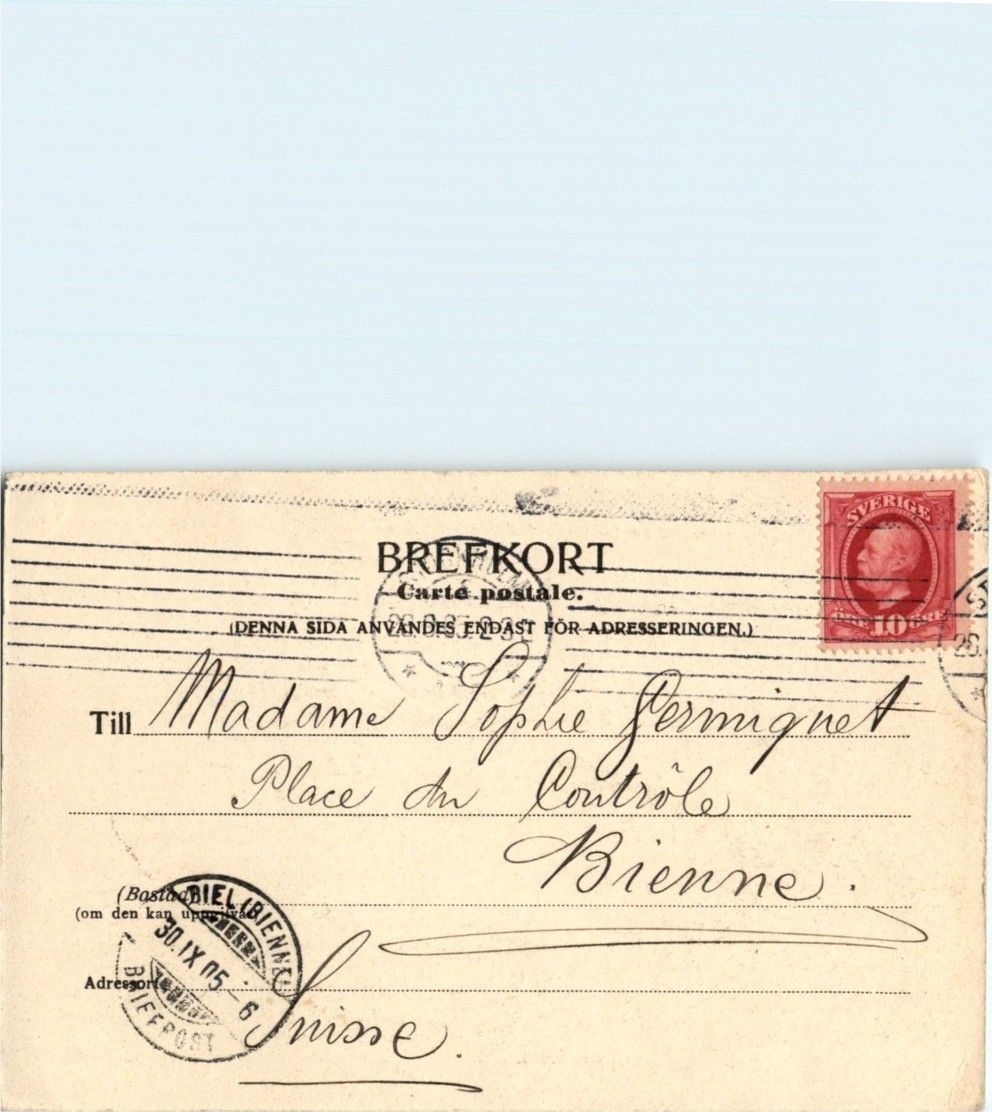 SVERIGE
10
BREFKORT
Carte postale.
(DENNA SIDA ANVÄNDES ENDAST FÖR ADRESSERINGEN.)
Till Madame Sophie Germiquet
Place du Contrôle
Bienne.
(Bostad)
(om den kan uppgifvas)
Adressort
Suisse.
BIEL (BIENNE)
30.IX.05-6
BRIEFPOST